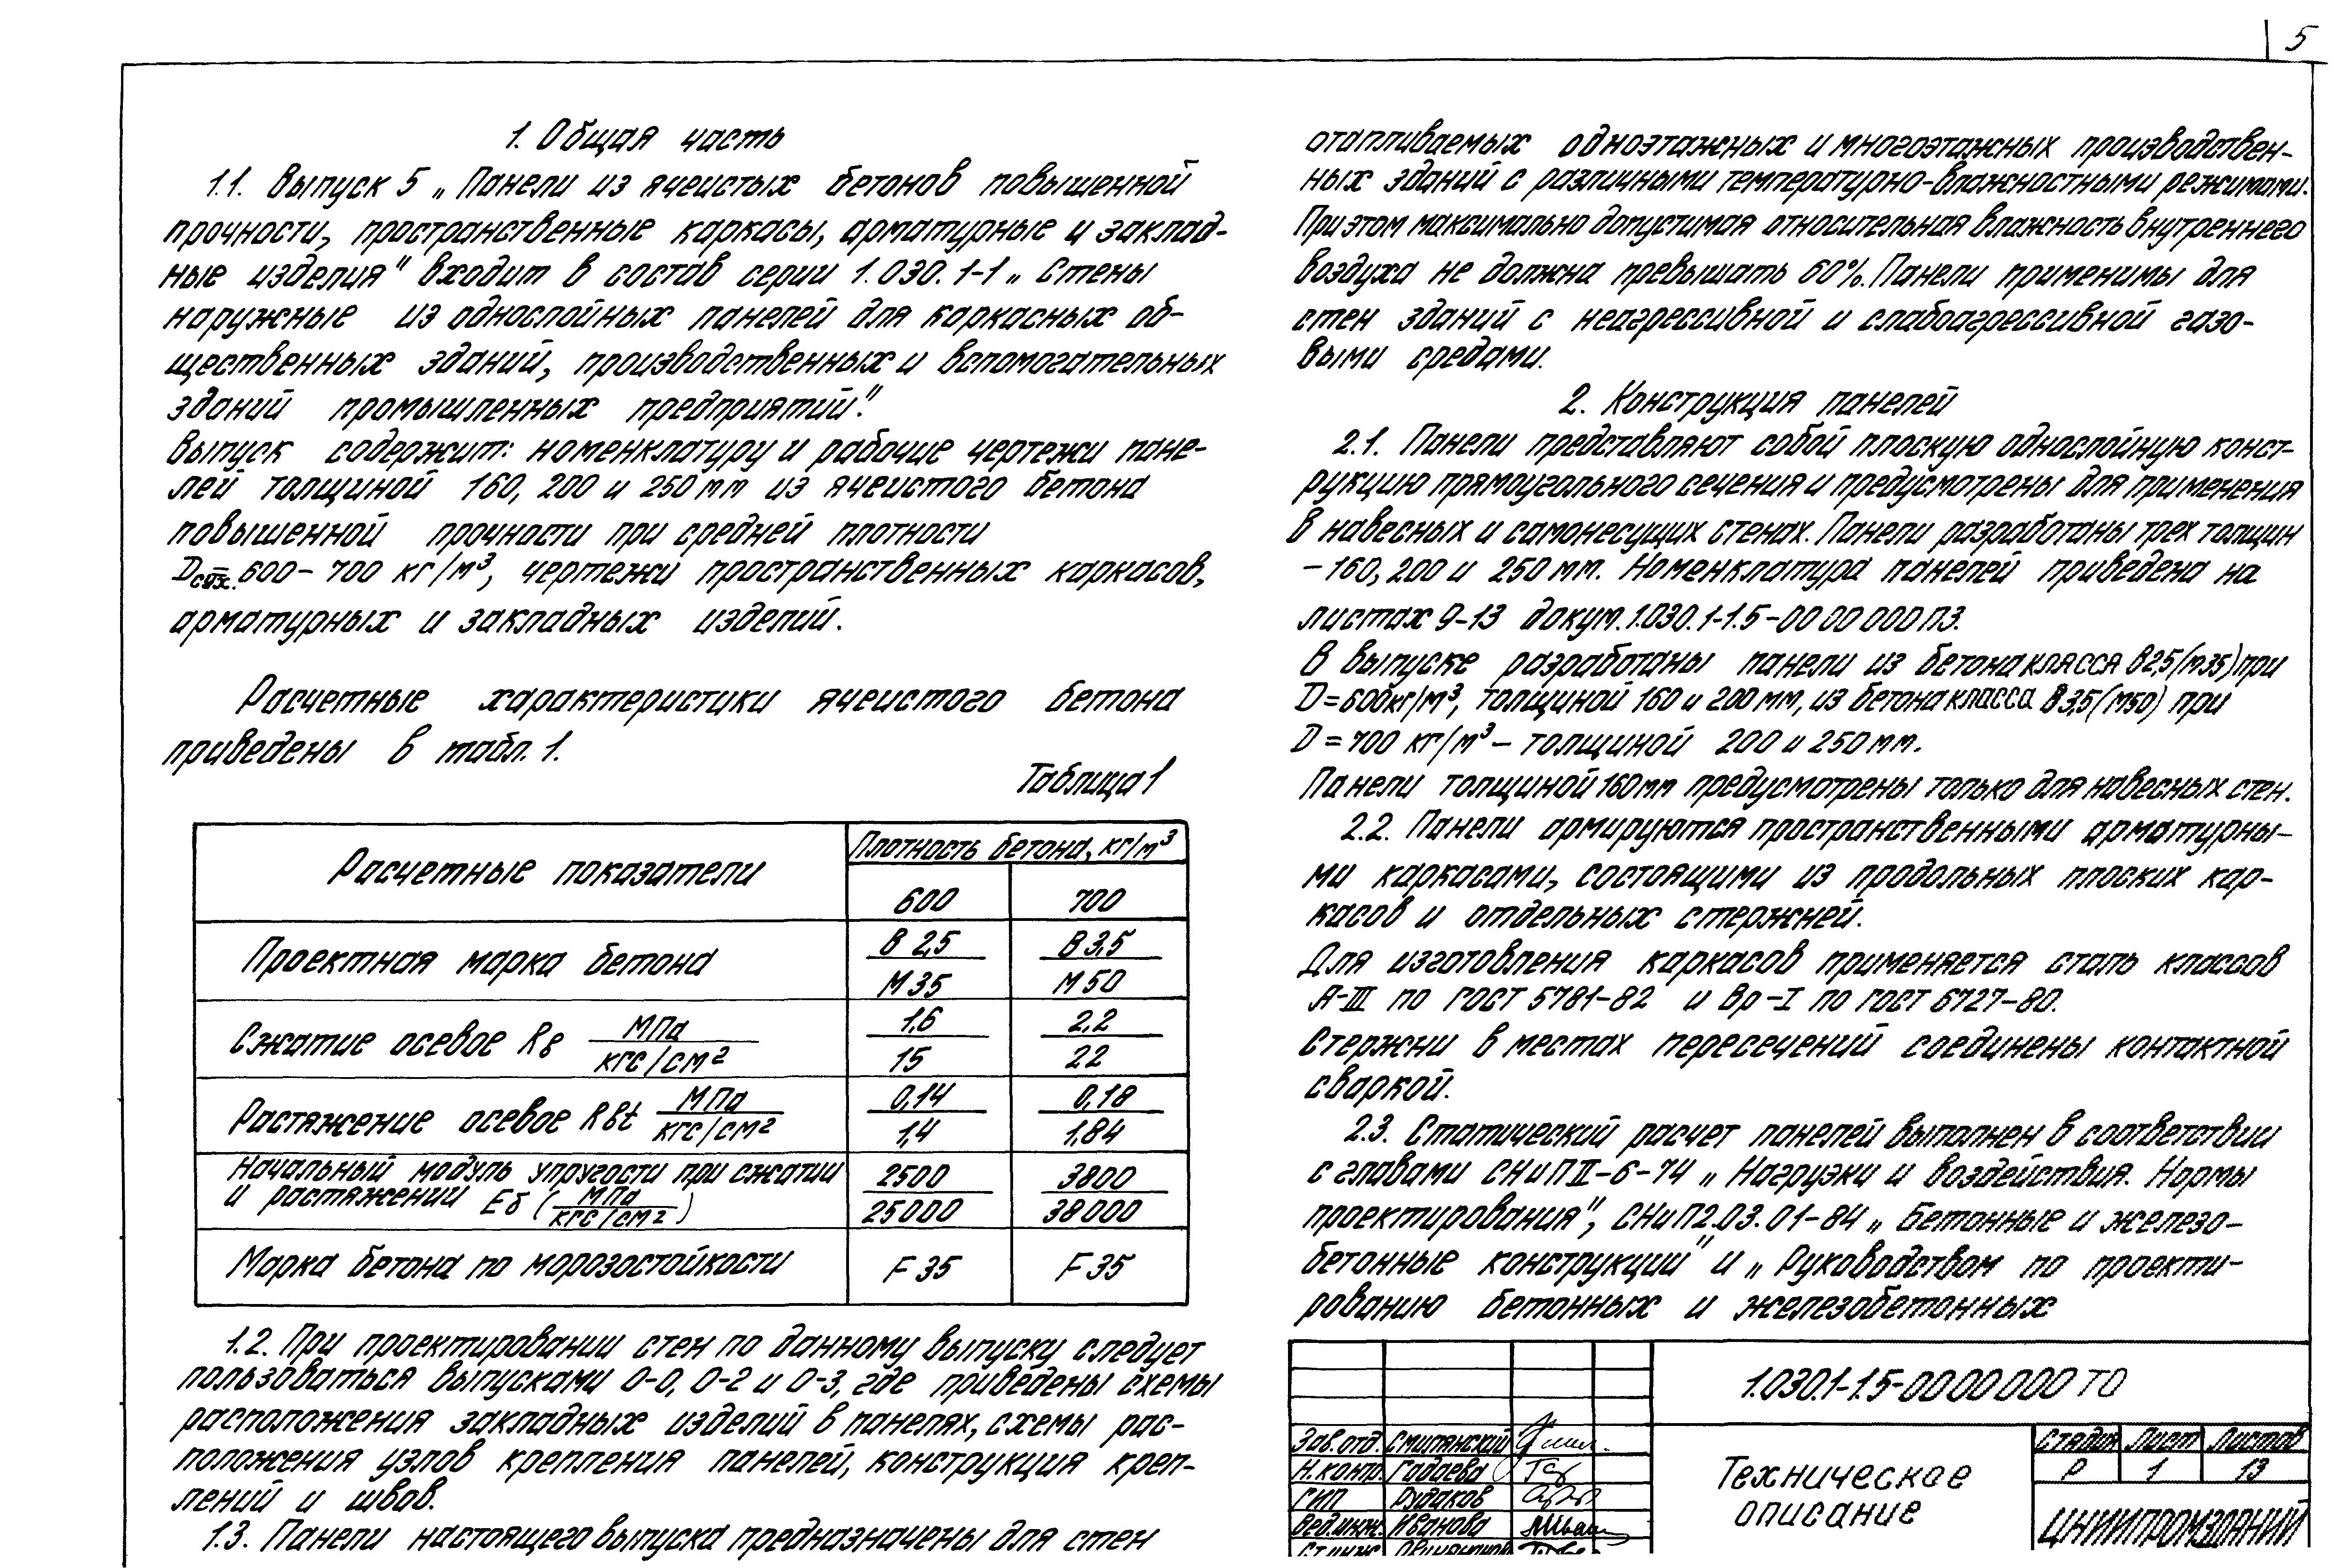 5
1. Общая часть
1.1. Выпуск 5 „Панели из ячеистых бетонов повышенной
прочности, пространственные каркасы, арматурные и заклад-
ные изделия" входит в состав серии 1.030.1-1 „Стены
наружные из однослойных панелей для каркасных об-
щественных зданий, производственных и вспомогательных
зданий промышленных предприятий."
Выпуск содержит: номенклатуру и рабочие чертежи пане-
лей толщиной 160, 200 и 250 мм из ячеистого бетона
повышенной прочности при средней плотности
600-700 кг/м³, чертежи пространственных каркасов,
арматурных и закладных изделий.
Расчетные характеристики ячеистого бетона
приведены в табл. 1.
Таблица 1
Расчетные показатели
Плотность бетона, кг/м³
600
700
Проектная марка бетона
В 2,5
М 35
В 3,5
М 50
Сжатие осевое Rв МПа
кгс/см²
1,6
15
2,2
22
Растяжение осевое Rвt МПа
кгс/см²
0,14
1,4
0,18
1,84
Начальный модуль упругости при сжатии
и растяжении Еб (МПа
кгс/см²)
2500
25000
3800
38000
Марка бетона по морозостойкости
F 35
F 35
1.2. При проектировании стен по данному выпуску следует
пользоваться выпусками 0-0, 0-2 и 0-3, где приведены схемы
расположения закладных изделий в панелях, схемы рас-
положения узлов крепления панелей, конструкция креп-
лений и швов.
1.3. Панели настоящего выпуска предназначены для стен
отапливаемых одноэтажных и многоэтажных производствен-
ных зданий с различными температурно-влажностными режимами.
При этом максимально допустимая относительная влажность внутреннего
воздуха не должна превышать 60%. Панели применимы для
стен зданий с неагрессивной и слабоагрессивной газо-
выми средами.
2. Конструкция панелей
2.1. Панели представляют собой плоскую однослойную конст-
рукцию прямоугольного сечения и предусмотрены для применения
в навесных и самонесущих стенах. Панели разработаны трех толщин
- 160, 200 и 250 мм. Номенклатура панелей приведена на
листах 9-13 докум. 1.030.1-1.5-00 00 000 ПЗ.
В выпуске разработаны панели из бетона класса В2,5 (М35) при
D = 600 кг/м³, толщиной 160 и 200 мм, из бетона класса В 3,5 (М50) при
D = 700 кг/м³ - толщиной 200 и 250 мм.
Панели толщиной 160 мм предусмотрены только для навесных стен.
2.2. Панели армируются пространственными арматурны-
ми каркасами, состоящими из продольных плоских кар-
касов и отдельных стержней.
Для изготовления каркасов применяется сталь классов
А-III по ГОСТ 5781-82 и Вр-I по ГОСТ 6727-80.
Стержни в местах пересечений соединены контактной
сваркой.
2.3. Статический расчет панелей выполнен в соответствии
с главами СНиП II-6-74 „Нагрузки и воздействия. Нормы
проектирования", СНиП 2.03.01-84 „Бетонные и железо-
бетонные конструкции" и „Руководством по проекти-
рованию бетонных и железобетонных
1.030.1-1.5-00 00 000 ТО
Зав. отд. Смилянский
Н. контр. Гадаева
ГИП Рудаков
Вед. инж. Иванова
Техническое
описание
Стадия Лист Листов
Р 1 13
ЦНИИПРОМЗДАНИЙ